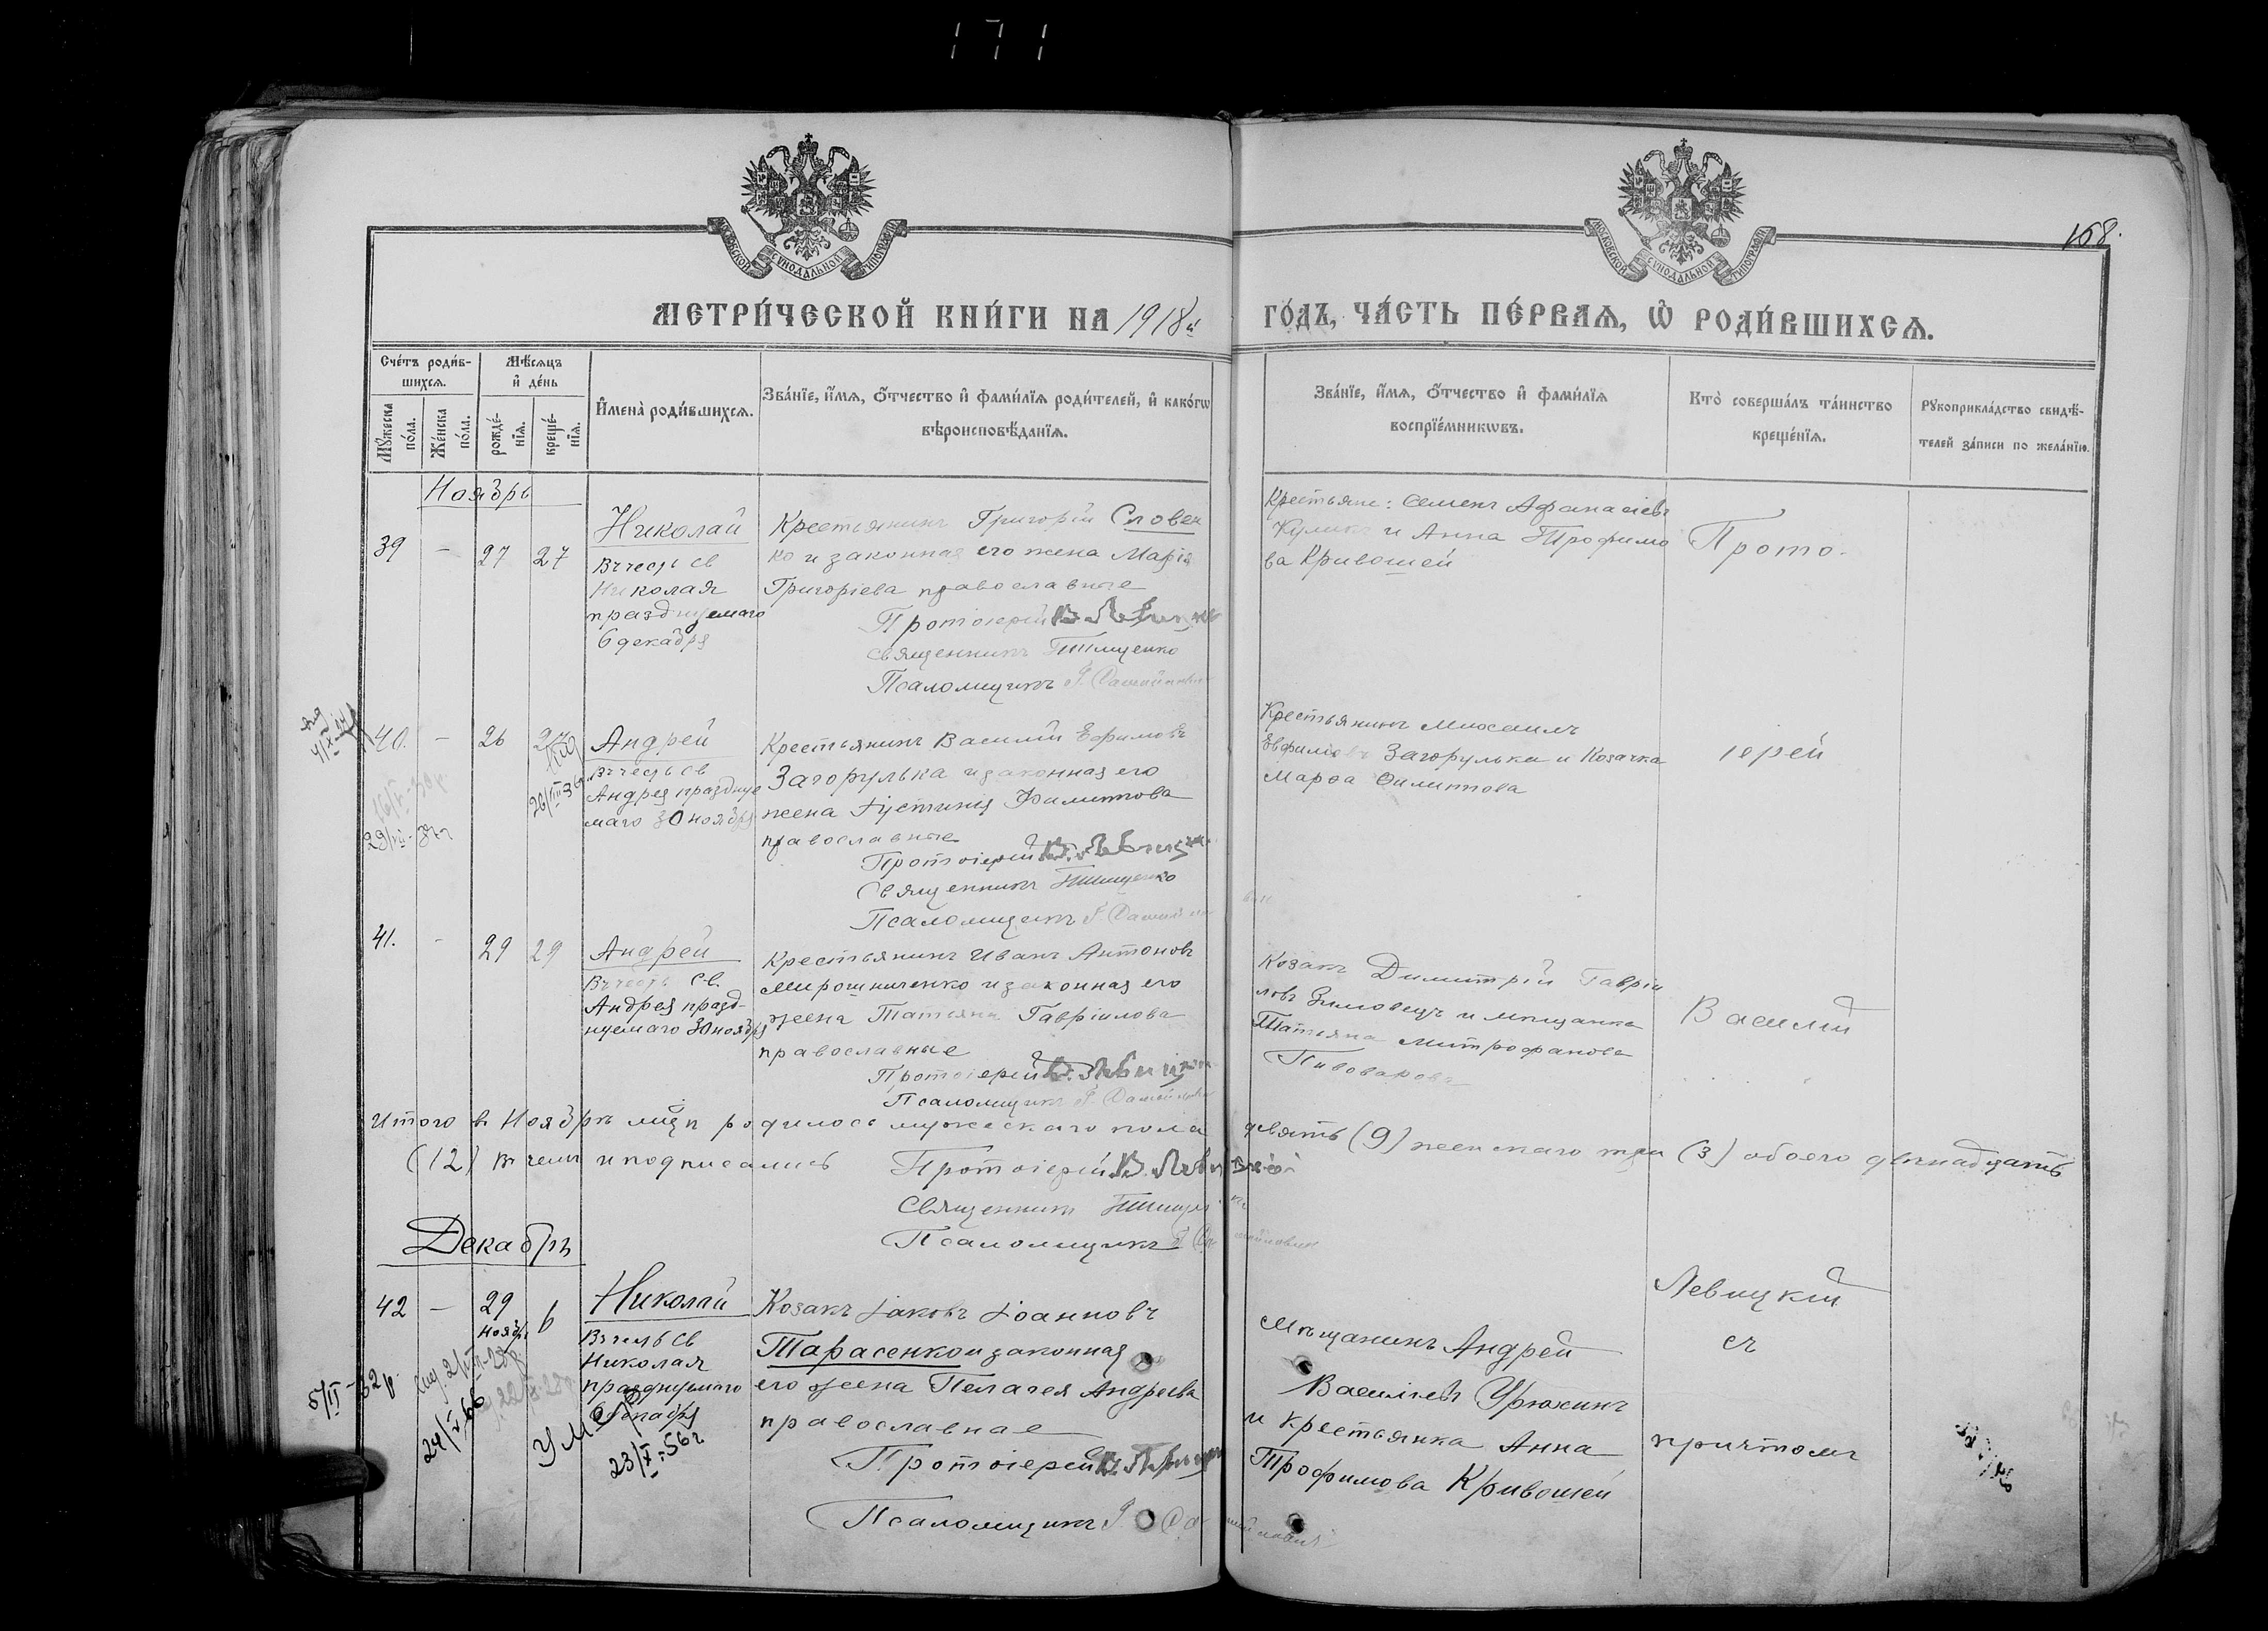 171
МОСКОВСКОЙ СѴНОДАЛЬНОЙ ТИПОГРАФІИ
МОСКОВСКОЙ СѴНОДАЛЬНОЙ ТИПОГРАФІИ
168.
МЕТРИ́ЧЕСКОЙ КНИ́ГИ НА 1918й ГО́ДЪ, ЧА́СТЬ ПЕ́РВАѦ, Ѽ РОДИ́ВШИХСѦ.
Сче́тъ роди́в-
шихсѧ.
Мꙋ́жеска
по́ла.
Же́нска
по́ла.
Мѣ́сѧцъ
и҆ де́нь
рожде́-
нїѧ.
креще́-
нїѧ.
И҆мена̀ роди́вшихсѧ.
Зва́нїе, и҆́мѧ, ѻ҆́тчество и҆ фами́лїѧ роди́телей, и҆ како́гѡ
вѣроисповѣ́данїѧ.
Зва́нїе, и҆́мѧ, ѻ҆́тчество и҆ фами́лїѧ
воспрїе́мникѡвъ.
Кто̀ соверша́лъ та́инство
креще́нїѧ.
Рꙋкоприкла́дство свидѣ́-
телей за́писи по жела́нїю.
Ноябрь
39 - 27 27
Николай
Въ честь св
Николая
празднуемаго
6 декабря
Крестьянинъ Григорій Словен
ко и законная его жена Марія
Григоріева православные
Протоіерей В. Левицкій
Священникъ Тищенко
Псаломщикъ
Крестьяне: Семенъ Афанасіевъ
Куликъ и Анна Трофимо
ва Кривошей
Прото-
40. - 26
Андрей
Въ честь св
Андрея празднуе
маго 30 ноября
Крестьянинъ Василій Ефимовъ
Загорулька и законная его
жена Іустинія Филиппова
православные
Протоіерей В. Левицкій
Священникъ Тищенко
Псаломщикъ
Крестьянинъ Михаилъ
Евфиміевъ Загорулька и Козачка
Марѳа Филиппова
іерей
26/III 36
41. - 29 29
Андрей
Въ честь св.
Андрея празд-
нуемаго 30 ноября
Крестьянинъ Иванъ Антоновъ
Мирошниченко и законная его
жена Татьяна Гавріилова
православные
Протоіерей В. Левицкій
Псаломщикъ
Козакъ Димитрій Гавріи
ловъ Зимовецъ и мѣщанка
Татьяна Митрофанова
Пивоварова
Василій
Итого въ Ноябрѣ мцѣ родилось мужескаго пола девять (9) женскаго три (3) обоего двѣнадцать
(12) въ чемъ и подписались Протоіерей В. Левицкій
Священникъ Тищенко
Псаломщикъ
Декабрь
42 - 29
Ноябр. 6
Николай
Въ честь св
Николая
празднуемаго
6 декабря
Козакъ Іаковъ Іоанновъ
Тарасенко и законная
его жена Пелагея Андреева
православные
Протоіерей В. Левицкій
Псаломщикъ
Мѣщанинъ Андрей
Васильевъ Урюкинъ
и крестьянка Анна
Трофимова Кривошей
Левицкій
съ
причтомъ
5/II-32 р.
24/V 66
Умер
23/X-56 г